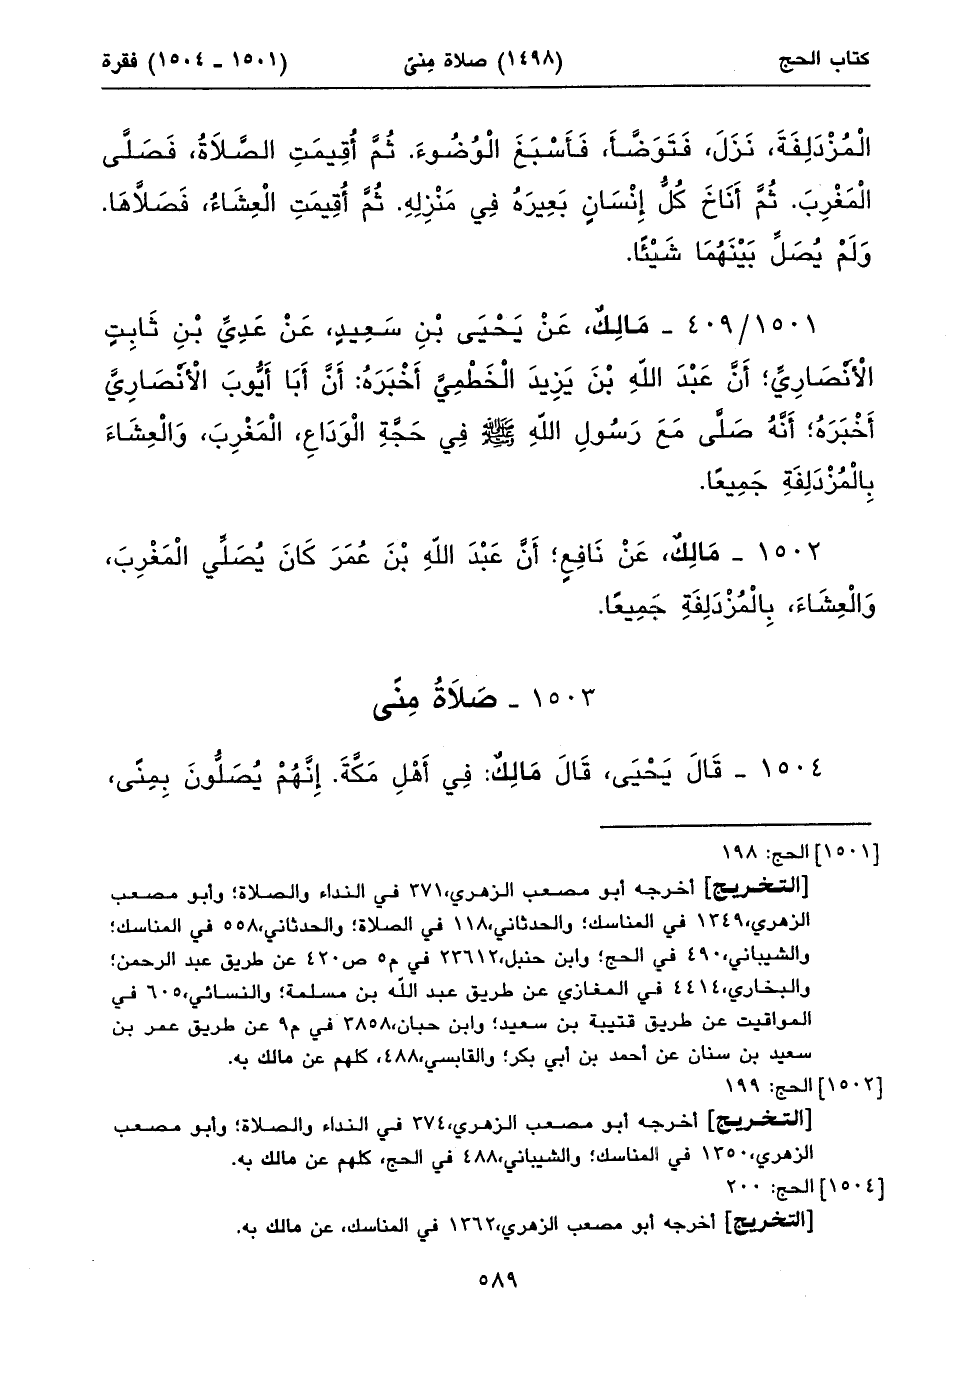 كتاب الحج (١٤٩٨) صلاة مِنىً (١٥٠١ - ١٥٠٤) فقرة
الْمُزْدَلِفَةَ، نَزَلَ، فَتَوَضَّأَ، فَأَسْبَغَ الْوُضُوءَ. ثُمَّ أُقِيمَتِ الصَّلَاةُ، فَصَلَّى
الْمَغْرِبَ. ثُمَّ أَنَاخَ كُلُّ إِنْسَانٍ بَعِيرَهُ فِي مَنْزِلِهِ. ثُمَّ أُقِيمَتِ الْعِشَاءُ، فَصَلَّاهَا.
وَلَمْ يُصَلِّ بَيْنَهُمَا شَيْئًا.
٤٠٩/١٥٠١ - مَالِكٌ، عَنْ يَحْيَى بْنِ سَعِيدٍ، عَنْ عَدِيِّ بْنِ ثَابِتٍ
الْأَنْصَارِيِّ؛ أَنَّ عَبْدَ اللهِ بْنَ يَزِيدَ الْخَطْمِيَّ أَخْبَرَهُ: أَنَّ أَبَا أَيُّوبَ الْأَنْصَارِيَّ
أَخْبَرَهُ؛ أَنَّهُ صَلَّى مَعَ رَسُولِ اللهِ ﷺ فِي حَجَّةِ الْوَدَاعِ، الْمَغْرِبَ، وَالْعِشَاءَ
بِالْمُزْدَلِفَةِ جَمِيعًا.
١٥٠٢ - مَالِكٌ، عَنْ نَافِعٍ؛ أَنَّ عَبْدَ اللهِ بْنَ عُمَرَ كَانَ يُصَلِّي الْمَغْرِبَ،
وَالْعِشَاءَ، بِالْمُزْدَلِفَةِ جَمِيعًا.
١٥٠٣ - صَلَاةُ مِنًى
١٥٠٤ - قَالَ يَحْيَى، قَالَ مَالِكٌ: فِي أَهْلِ مَكَّةَ. إِنَّهُمْ يُصَلُّونَ بِمِنًى،
[١٥٠١] الحج: ١٩٨
[التخريج] أخرجه أبو مصعب الزهري،٣٧١ في النداء والصلاة؛ وأبو مصعب
الزهري،١٣٤٩ في المناسك؛ والحدثاني،١١٨ في الصلاة؛ والحدثاني،٥٥٨ في المناسك؛
والشيباني،٤٩٠ في الحج؛ وابن حنبل،٢٣٦١٢ في م٥ ص٤٢٠ عن طريق عبد الرحمن؛
والبخاري،٤٤١٤ في المغازي عن طريق عبد الله بن مسلمة؛ والنسائي،٦٠٥ في
المواقيت عن طريق قتيبة بن سعيد؛ وابن حبان،٣٨٥٨ في م٩ عن طريق عمر بن
سعيد بن سنان عن أحمد بن أبي بكر؛ والقابسي،٤٨٨، كلهم عن مالك به.
[١٥٠٢] الحج: ١٩٩
[التخريج] أخرجه أبو مصعب الزهري،٣٧٤ في النداء والصلاة؛ وأبو مصعب
الزهري،١٣٥٠ في المناسك؛ والشيباني،٤٨٨ في الحج، كلهم عن مالك به.
[١٥٠٤] الحج: ٢٠٠
[التخريج] أخرجه أبو مصعب الزهري،١٣٦٢ في المناسك، عن مالك به.
٥٨٩